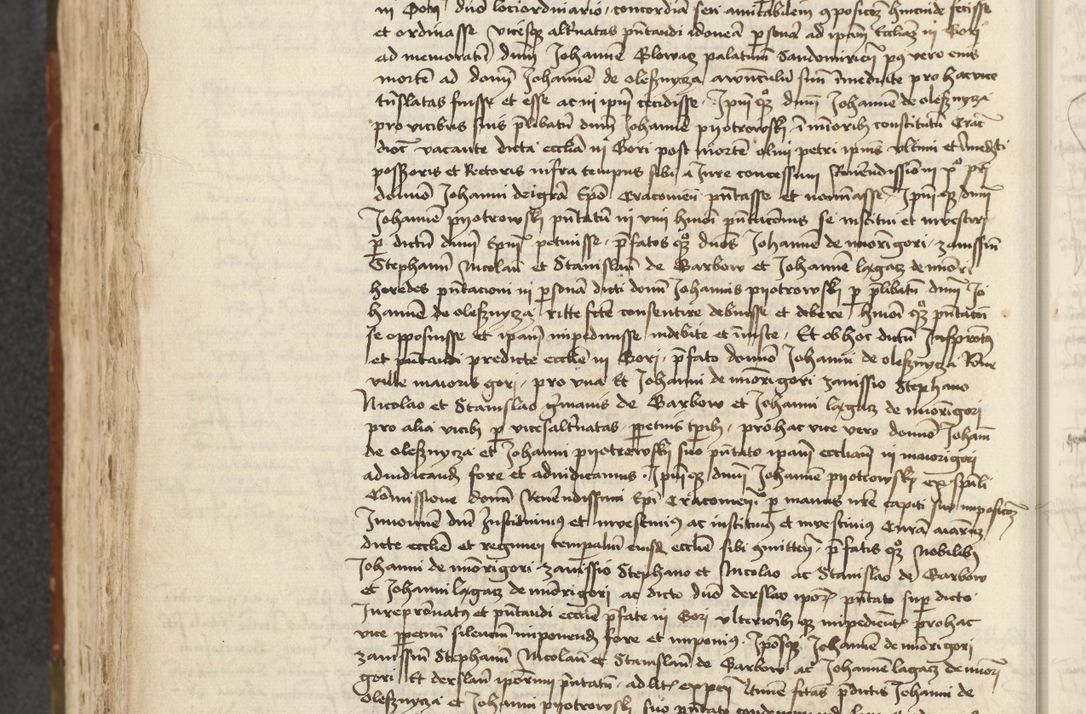 in Gori dnd locio ordinario concordiam seu amicabilem compositionem hincinde fecisse
et ordinasse vicesque alternatas presentandi idoneam personam ad ipsam eccliam in Gori
ad memoratum dnm Johannem Glowacz palatinum Sandomirien post vero eius
mortem ad dominum Johannem de Olesznycza avunculum suum immediate pro hac vice
translatas fuisse et esse ac in ipsum cecidisse Ipsumque dnm Johannem de olesznycza
pro vicibus suis prelibatum dnm Johannem pyotrowski in minoribus constitutum Crac
dioc vacante dicta ecclia in Gori post mortem olim petri ipsius ultimi et immediati
possessoris et Rectoris infra tempus sibi a Jure concessum Reverendissimo in xpo pri
domino Johanni dei gra Epo Cracovien presentasse et nominasse Ipsumque dnm
Johannem pyotrowski presentatum in vim huiusmodi presentacionis se institui et investiri
per dictum dnm Epum petiuisse prefatos quoque dnos Johannem de mnorigori zauissium
Stephanum Nicolaum et Stanislaum de Garbow et Johannem lagacz de mnori
heredes presentacioni in personam dicti domini Johannis pyotrowski per prelibatum dnm Jo
hannem de olesznycza rite facte consentire debuisse et debere huiusmodi quoque presentacioni
se opposuisse et ipsam impediuisse indebite et iniuste Et ob hoc dictum Juspatronatus
et presentandi predicte ecclie in Gori prefato domino Johanni de olesznycza Rone
ville maioris gori pro vna Et Johanni de mnorigori zauissio Stephano
Nicolao et Stanislao germanis de Garbow et Johanni lagacz de mnorigori
pro alia vicibus per vices alternatas perpetuis temporibus pro hac vice vero domino Johanni
de olesznycza et Johanni pyotrowski suo presentato ipsam eccliam in maiorigori
adiudicandum fore et adiudicamus Ipsumque dnm Johannem pyotrowski ex spili
Comissione domini Reverendissimi Epi Cracovien per manus nre capiti suo imposicionem
Jnuomine dni Jnstituimus et inuestimus ac instituimus et inuestiuimus Curam animarum
dicte ecclie et regimen temporalium eiusdem ecclie sibi committen prefatis quoque Nobilibus
Johanni de mnorigori zauissio Stephano et Nicolao ac Stanislao de Garbow
et Johanni lagacz de mnorigori ac dicto dno derslao ipsorum presentato super dicto
Jurepatronatus et presentandi ecclie prefate in Gori vlterioribusque impedientibus pro hac
vice perpetuum silencium imponendum fore et imponimus Ipsosque Johannem de mnorigori
zauissium Stephanum Nicolaum et Stanislaum de Garbow ac Johannem lagacz de mnori
gori Et derslaum ipsorum presentatum ad litis expen Racione factas predictis Johanni de
Olesznycza et Johanni pyotrowski suo presentato